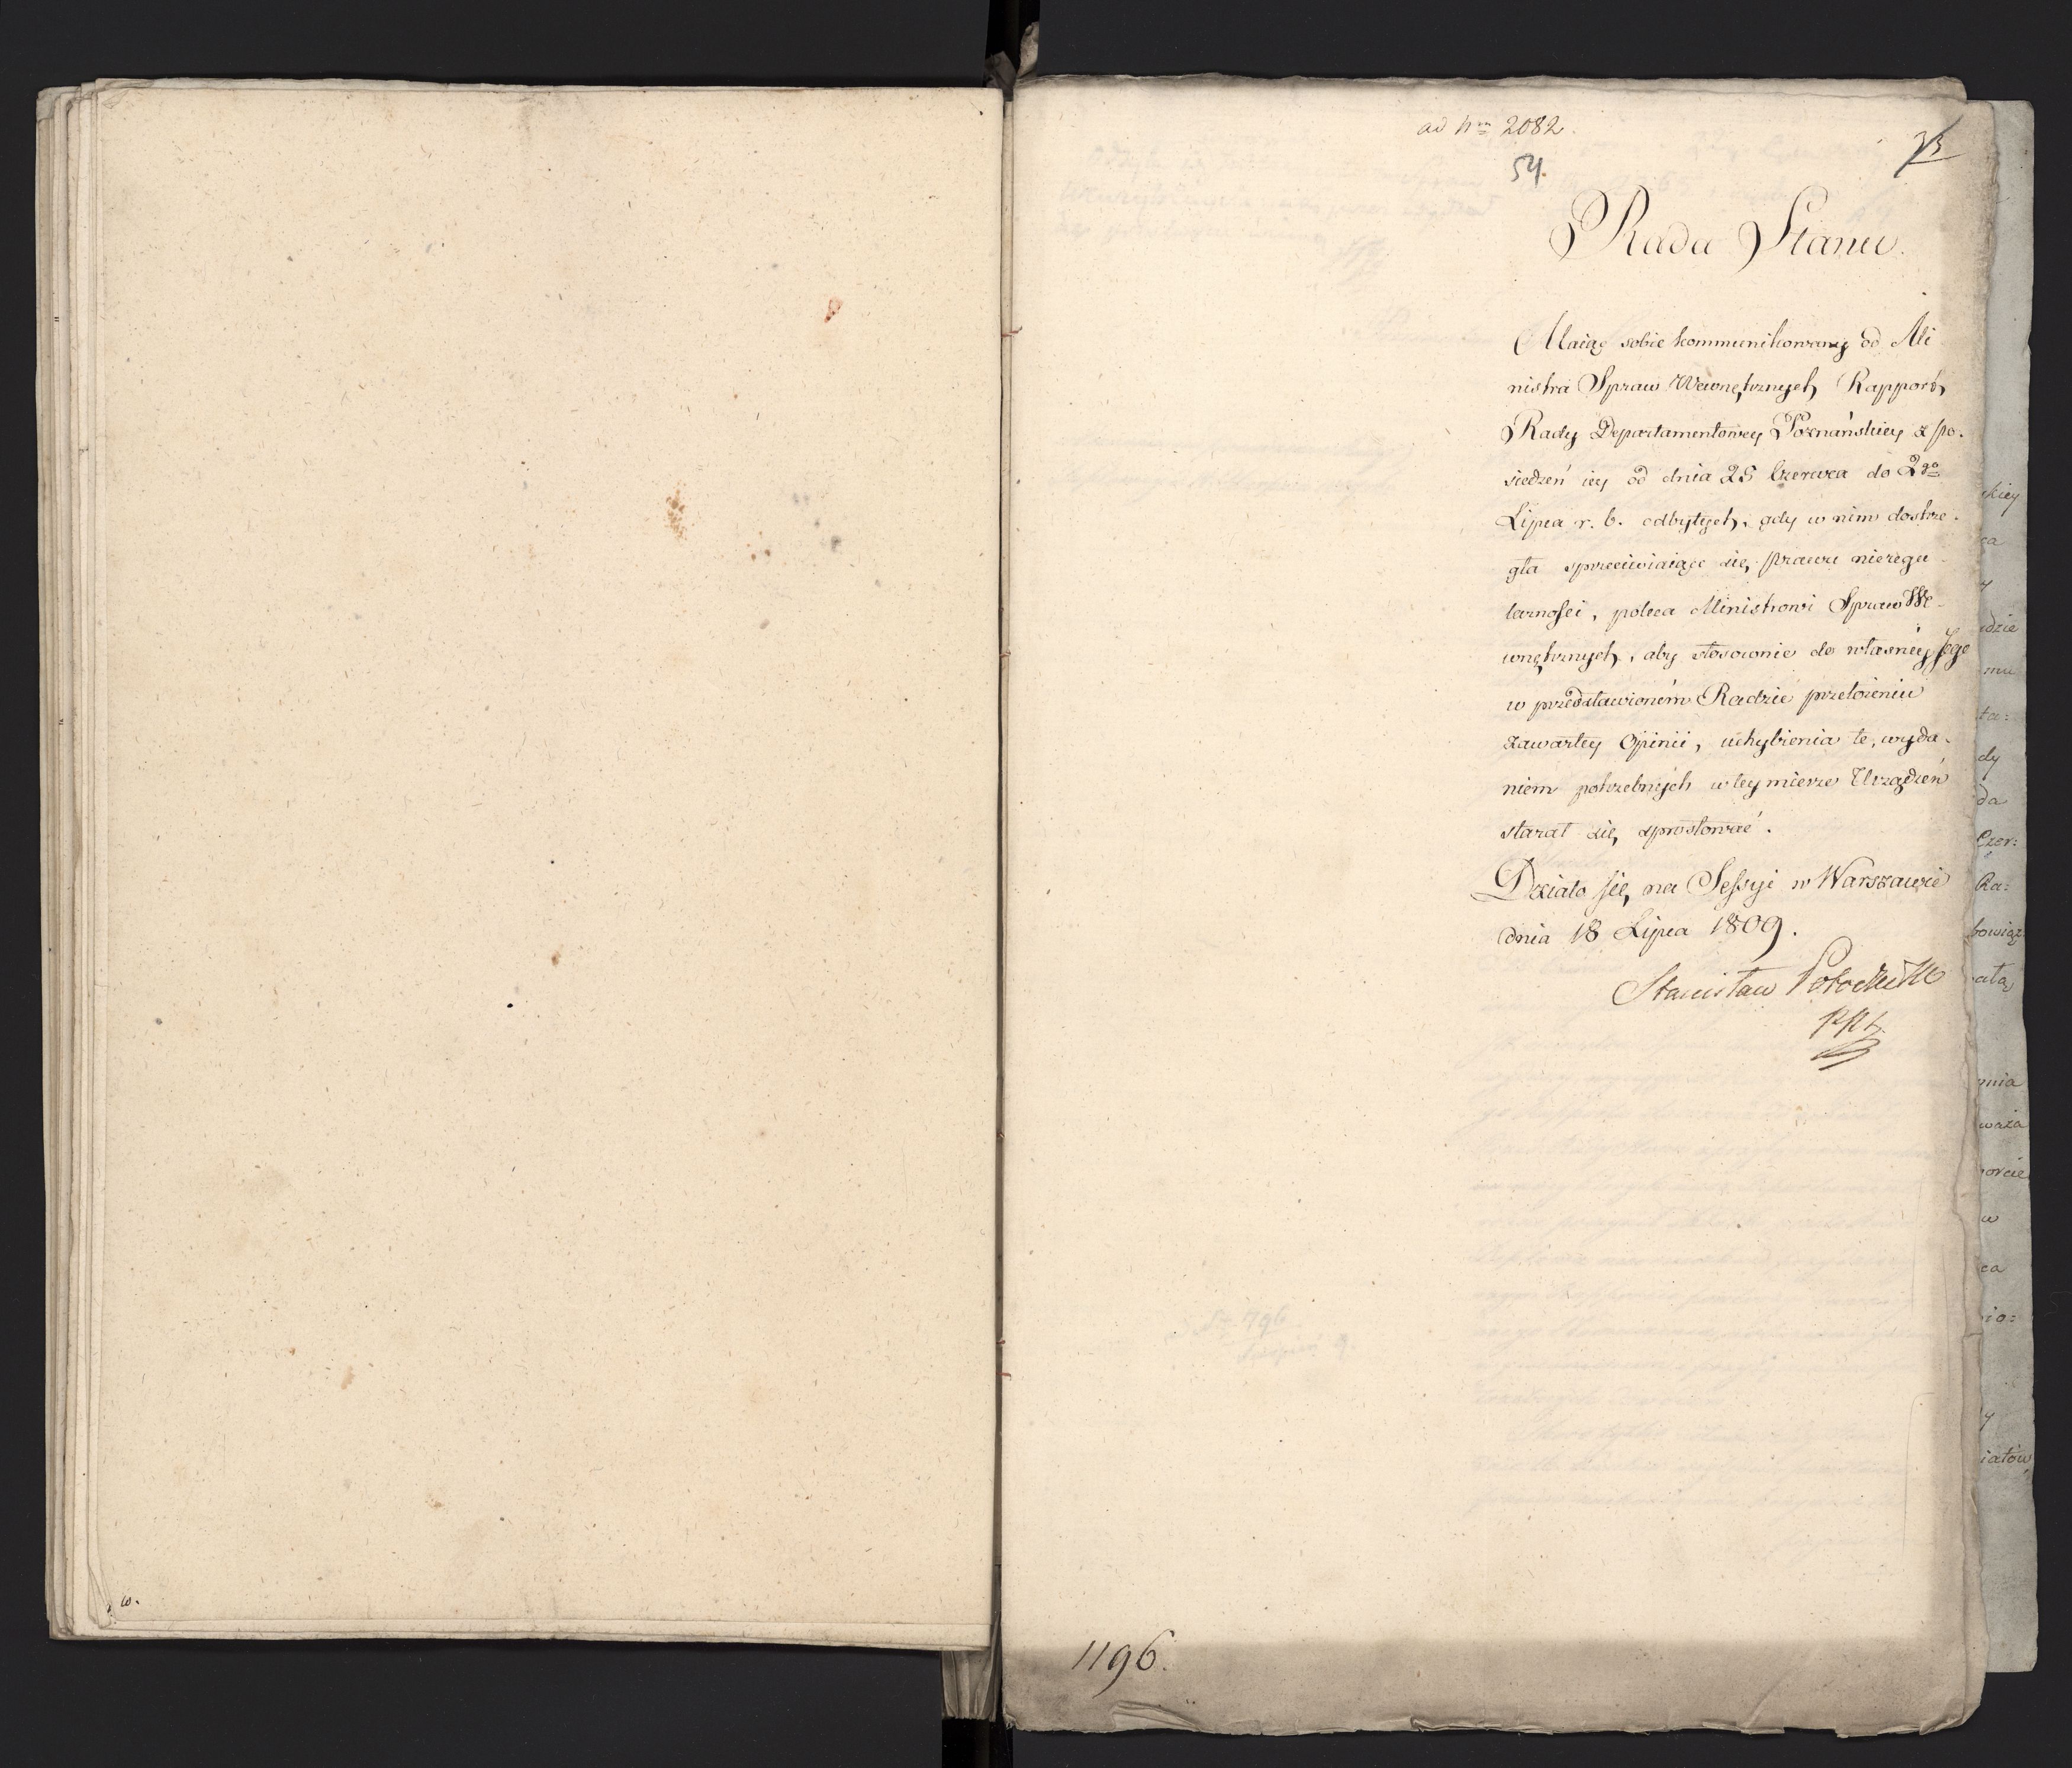 ad Nrm 2082.
54.
Rada Stanu.
Maiąc sobie kommunikowany od Mi
nistra Spraw Wewnętrznych Rapport
Rady Departamentowey Poznańskiey z po-
siedzeń iey od dnia 25 Czerwca do 2go
Lipca r. b. odbytych, gdy w nim dostrze-
gła sprzeciwiaiące się prawu nieregu-
larności, poleca Ministrowi Spraw We-
wnętrznych, aby stosownie do własnéy Jego
w przedstawioném Radzie przełożeniu
zawartey Opinii, uchybienia te, wyda-
niem potrzebnych w tey mierze Urządzeń
starał się sprostować.
Działo się na Sessyi w Warszawie
dnia 18 Lipca 1809.
Stanisław Potocki
1196.
w.
kiey
ca
y
dzie
mu
ta:
dy
da
Czer:
Ra:
bowiąz:
ała
nia
waża
porcie
w
ca
io:
y
iałów